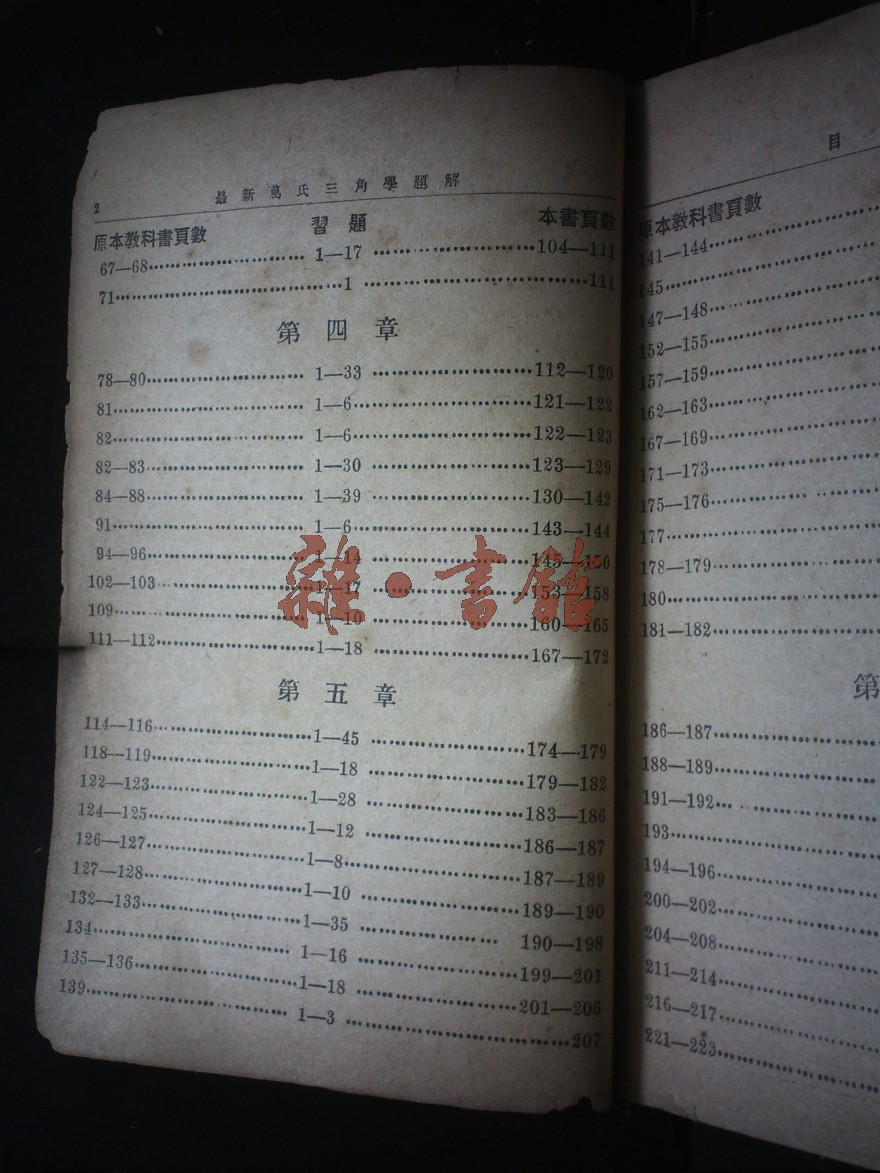 2 最新葛氏三角學題解
原本教科書頁數 習題 本書頁數
67—68 1—17 104—111
71 1 111
第四章
78—80 1—33 112—120
81 1—6 121—122
82 1—6 122—123
82—83 1—30 123—129
84—88 1—39 130—142
91 1—6 143—144
94—96 1—14 145—150
102—103 1—17 153—158
109 1—10 160—165
111—112 1—18 167—172
第五章
114—116 1—45 174—179
118—119 1—18 179—182
122—123 1—28 183—186
124—125 1—12 186—187
126—127 1—8 187—189
127—128 1—10 189—190
132—133 1—35 190—198
134 1—16 199—201
135—136 1—18 201—206
139 1—3 207
雜·書館
目
原本教科書頁數
141—144
145
147—148
152—155
157—159
162—163
167—169
171—173
175—176
177
178—179
180
181—182
第
186—187
188—189
191—192
193
194—196
200—202
204—208
211—214
216—217
221—223